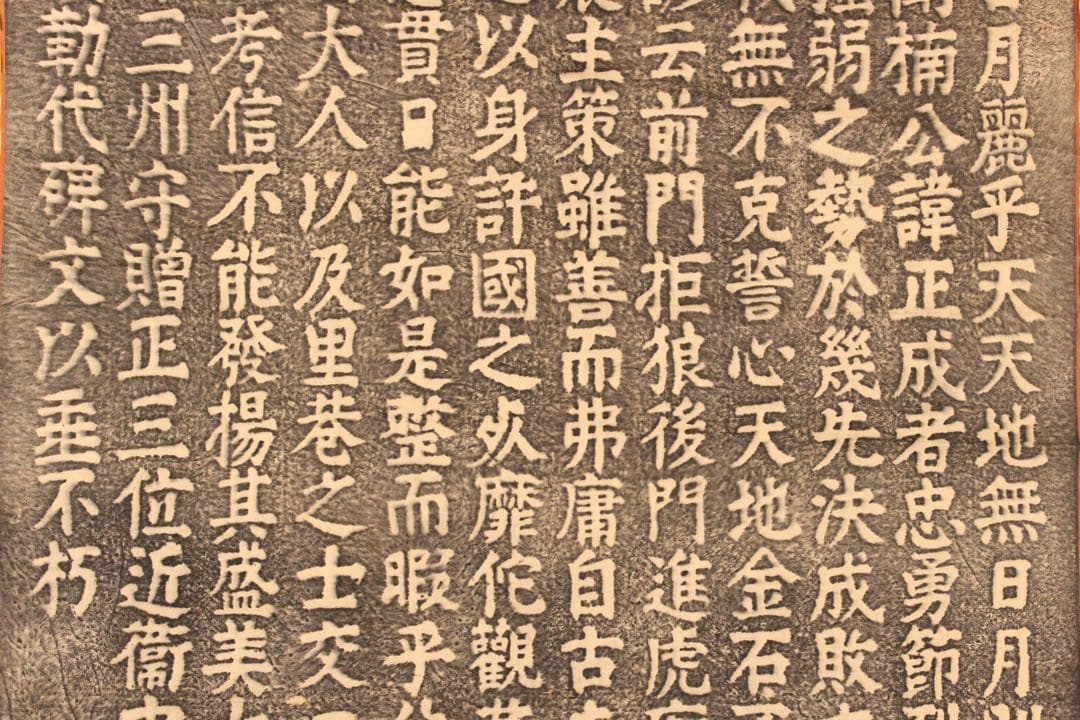 月麗乎天天地無日月
聞楠公諱正成者忠勇節烈
强弱之勢於幾先決成敗
無不克誓心天地金石不
諺云前門拒狼後門進虎
主策雖善而弗庸自古
以身許國之死靡佗觀
貫日能如是整而暇乎
大人以及里巷之士交
考信不能發揚其盛美
三州守贈正三位近衞
勒代碑文以垂不朽